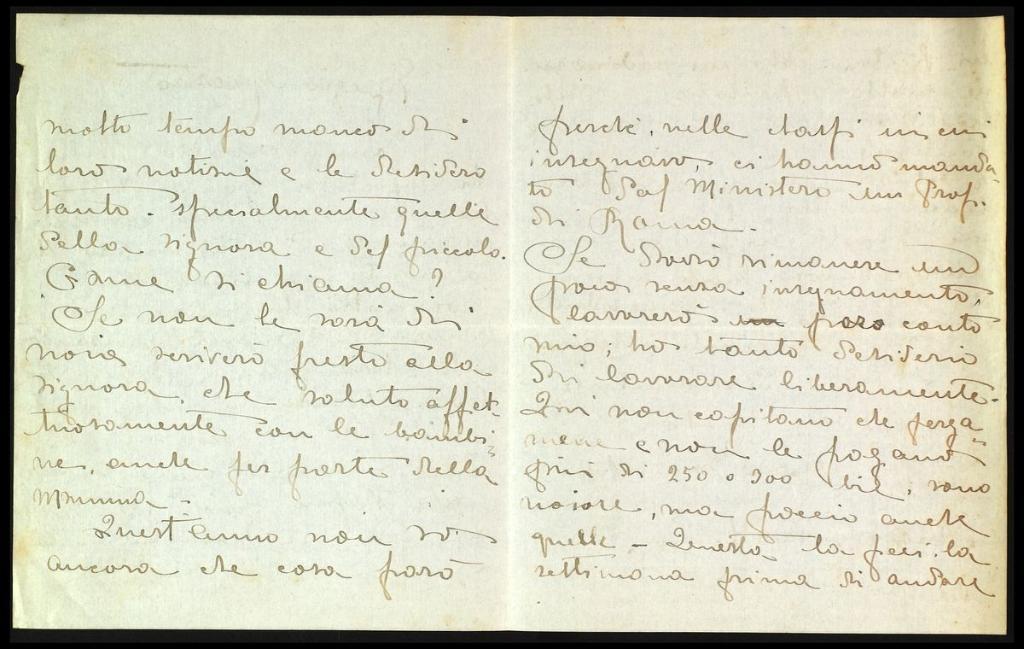 molto tempo manco di
loro notizie e le desidero
tanto. Specialmente quelle
della Signora e del piccolo.
Come si chiama?
Se non le sarà di
noia scriverò presto alla
Signora, che saluto affet=
tuosamente con le bambi=
ne, anche per parte della
Mamma -
Quest'anno non so
ancora che cosa farò
perché, nelle classi in cui
insegnavo, ci hanno manda=
to dal Ministero un Prof.
di Roma.
Se dovrò rimanere un
poco senza insegnamento,
lavorerò per conto
mio; ho tanto desiderio
di lavorare liberamente.
Qui non capitano che perga=
mene e non le pagano
più di 250 o 300 lire, sono
noiose, ma faccio anche
quelle - Questa la feci la
settimana prima di andare